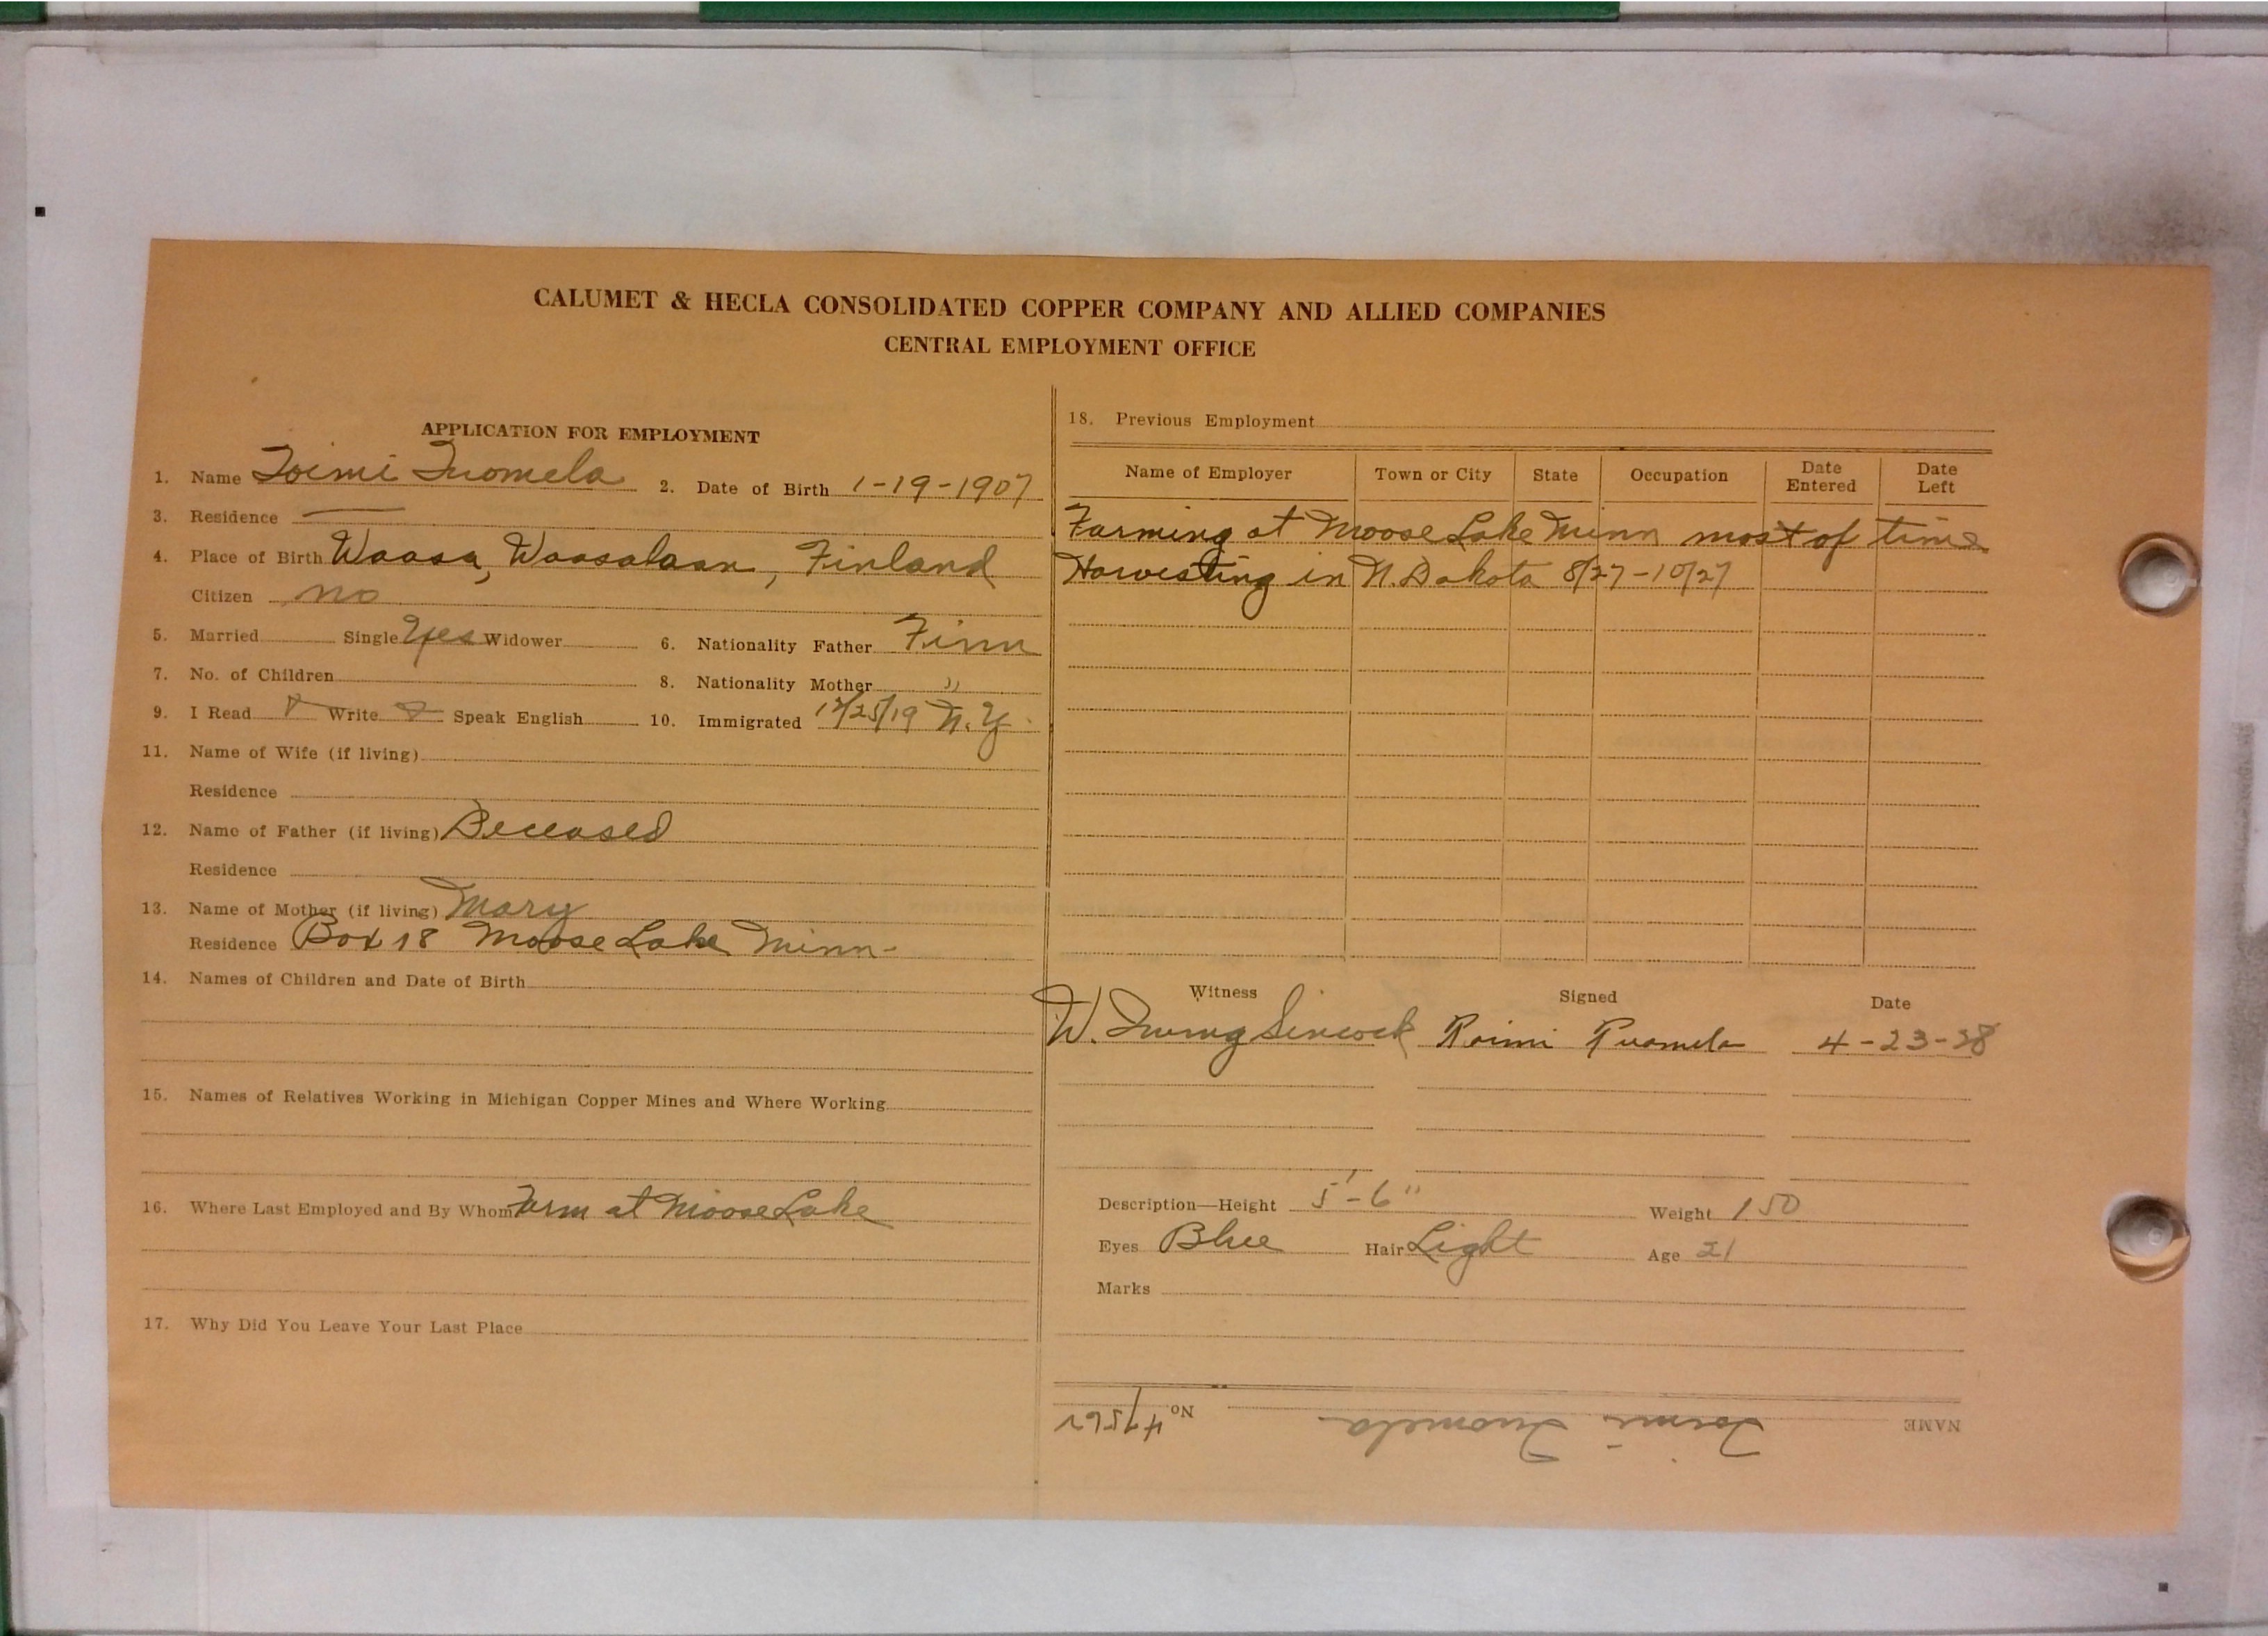 CALUMET & HECLA CONSOLIDATED COPPER COMPANY AND ALLIED COMPANIES
CENTRAL EMPLOYMENT OFFICE
APPLICATION FOR EMPLOYMENT
1. Name Toimi Tuomela 2. Date of Birth 1-19-1907
3. Residence —
4. Place of Birth Waasa, Waasalaan, Finland
Citizen no
5. Married Single Yes Widower 6. Nationality Father Finn
7. No. of Children 8. Nationality Mother "
9. I Read Write Speak English 10. Immigrated 12/25/19 N.Y.
11. Name of Wife (if living)
Residence
12. Name of Father (if living) Deceased
Residence
13. Name of Mother (if living) Mary
Residence Box 18 Moose Lake Minn-
14. Names of Children and Date of Birth
15. Names of Relatives Working in Michigan Copper Mines and Where Working
16. Where Last Employed and By Whom Farm at Moose Lake
17. Why Did You Leave Your Last Place
18. Previous Employment
Name of Employer Town or City State Occupation Date Entered Date Left
Farming at Moose Lake Minn most of time
Harvesting in N. Dakota 8/27-10/27
Witness Signed Date
W. Irving Sincock Toimi Tuomela 4-23-28
Description—Height 5'-6" Weight 150
Eyes Blue Hair Light Age 21
Marks
NAME Toimi Tuomela No. 47567